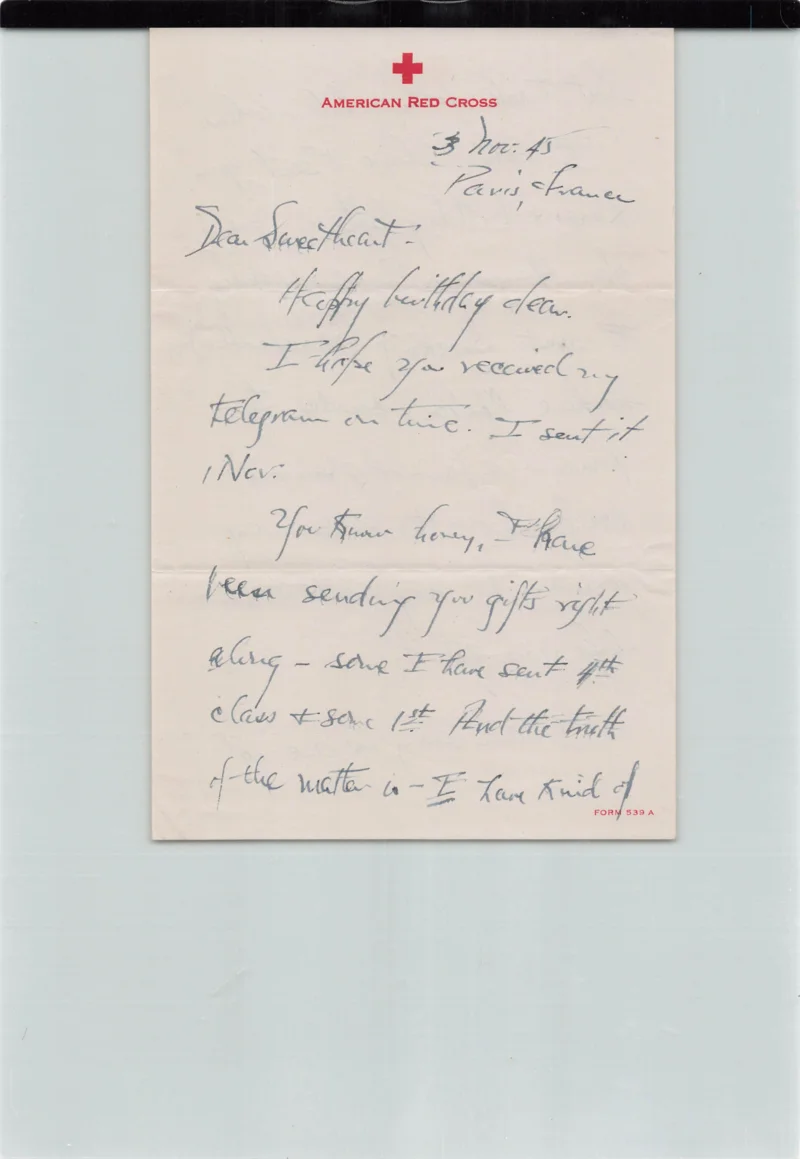 AMERICAN RED CROSS
3 Nov. 45
Paris, France
Dear Sweetheart:
Happy birthday dear.
I hope you received my
telegram on time. I sent it
1 Nov.
You know honey, I have
been sending you gifts right
along - some I have sent 4th
class & some 1st And the truth
of the matter is - I have kind of
FORM 539 A